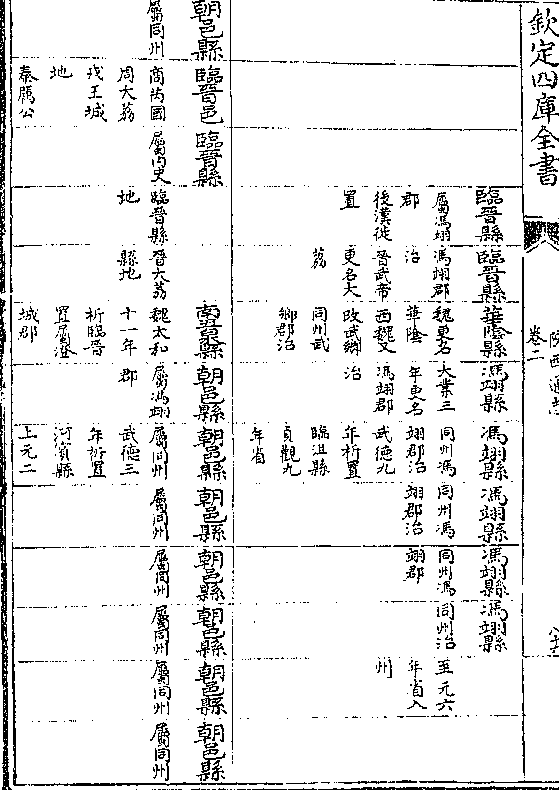 欽定四庫全書
陝西通志
卷二
臨晉縣
屬馮翊
郡
後漢徙
置
臨晉縣
馮翊郡
治
晉武帝
更名大
荔
華陰縣
魏更名
華陰
西魏又
改武鄉
同州武
鄉郡治
馮翊縣
大業三
年更名
馮翊郡
治
馮翊縣
同州馮
翊郡治
武德九
年析置
臨沮縣
貞觀九
年省
馮翊縣
同州馮
翊郡治
馮翊縣
同州馮
翊郡
馮翊縣
同州治
至元六
年省入
州
朝邑縣
屬同州
臨晉邑
商芮國
周大荔
戎王城
地
秦厲公
臨晉縣
屬內史
臨晉縣
地
晉大荔
縣地
南五泉縣
魏太和
十一年
析臨晉
置屬澄
城郡
朝邑縣
屬馮翊
郡
朝邑縣
屬同州
武德三
年析置
河濱縣
上元二
朝邑縣
屬同州
朝邑縣
屬同州
朝邑縣
屬同州
朝邑縣
屬同州
朝邑縣
屬同州